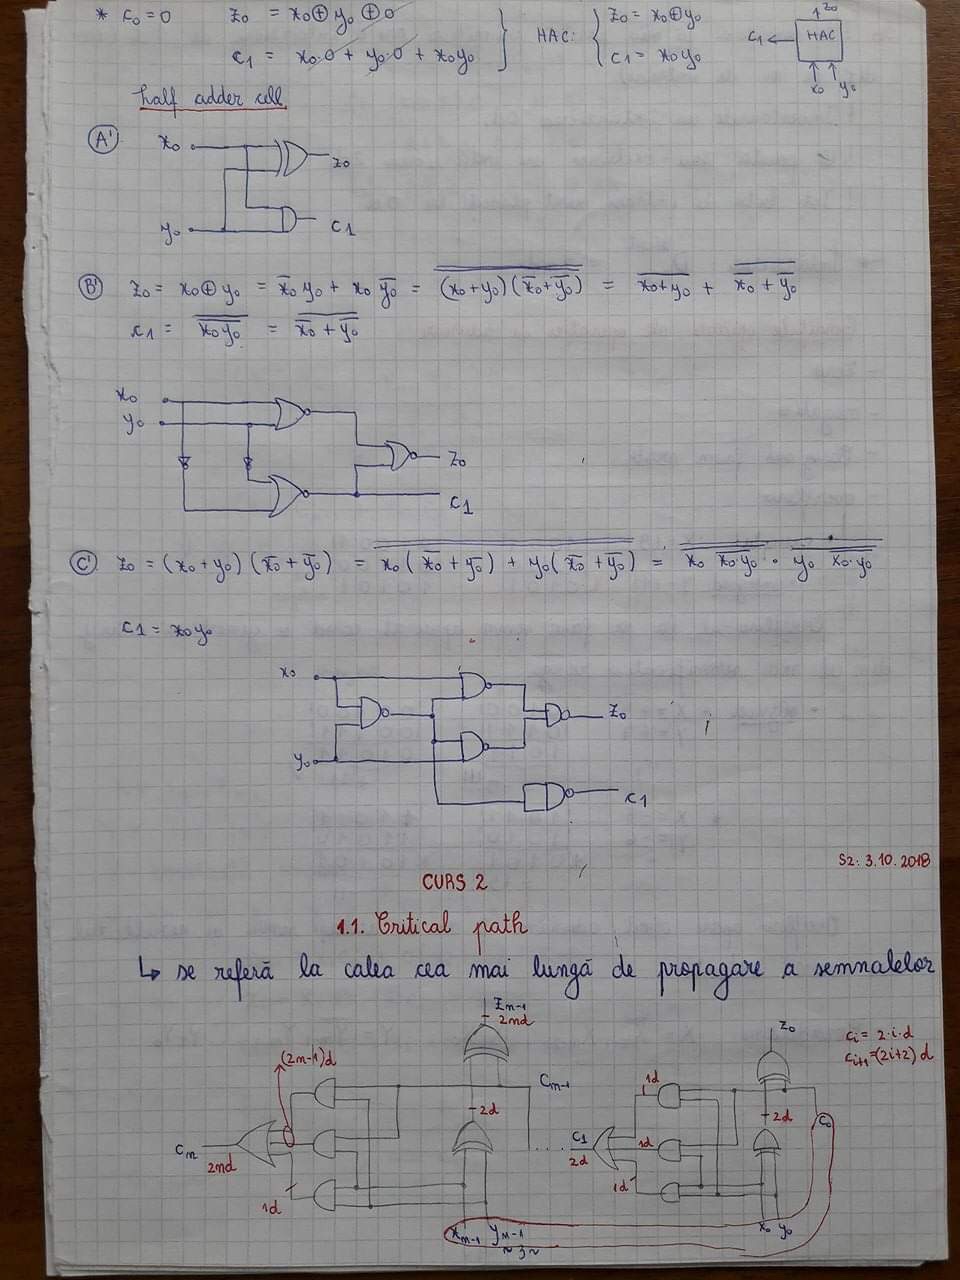 * c₀ = 0   z₀ = x₀ ⊕ y₀ ⊕ 0
c₁ = x₀·0 + y₀·0 + x₀y₀
HAC: { z₀ = x₀ ⊕ y₀
c₁ = x₀y₀
z₀
c₁ HAC
x₀ y₀
half adder cell
A'
x₀
z₀
y₀
c1
B' z₀ = x₀ ⊕ y₀ = x̅₀ y₀ + x₀ y̅₀ = \overline{\overline{(x₀ + y₀)(x̅₀ + y̅₀)}} = \overline{\overline{x₀ + y₀} + \overline{x̅₀ + y̅₀}}
c1 = \overline{\overline{x₀y₀}} = \overline{x̅₀ + y̅₀}
x₀
y₀
z₀
c1
C' z₀ = (x₀ + y₀)(x̅₀ + y̅₀) = \overline{\overline{x₀(x̅₀ + y̅₀) + y₀(x̅₀ + y̅₀)}} = \overline{\overline{x₀ \overline{x₀·y₀}} · \overline{y₀ \overline{x₀·y₀}}}
c1 = x₀y₀
x₀
z₀
y₀
c1
S2: 3.10.2018
CURS 2
1.1. Critical path
↳ se referă la calea cea mai lungă de propagare a semnalelor
zₘ₋₁
2nd
(2m-1)d
cₘ₋₁
2d
cₘ
2nd
1d
xₘ₋₁ yₘ₋₁
≈ 3 ~
z₀
cᵢ = 2·i·d
cᵢ₊₁ = (2i+2)d
1d
2d
c₀
c1
2d
1d
1d
x₀ y₀